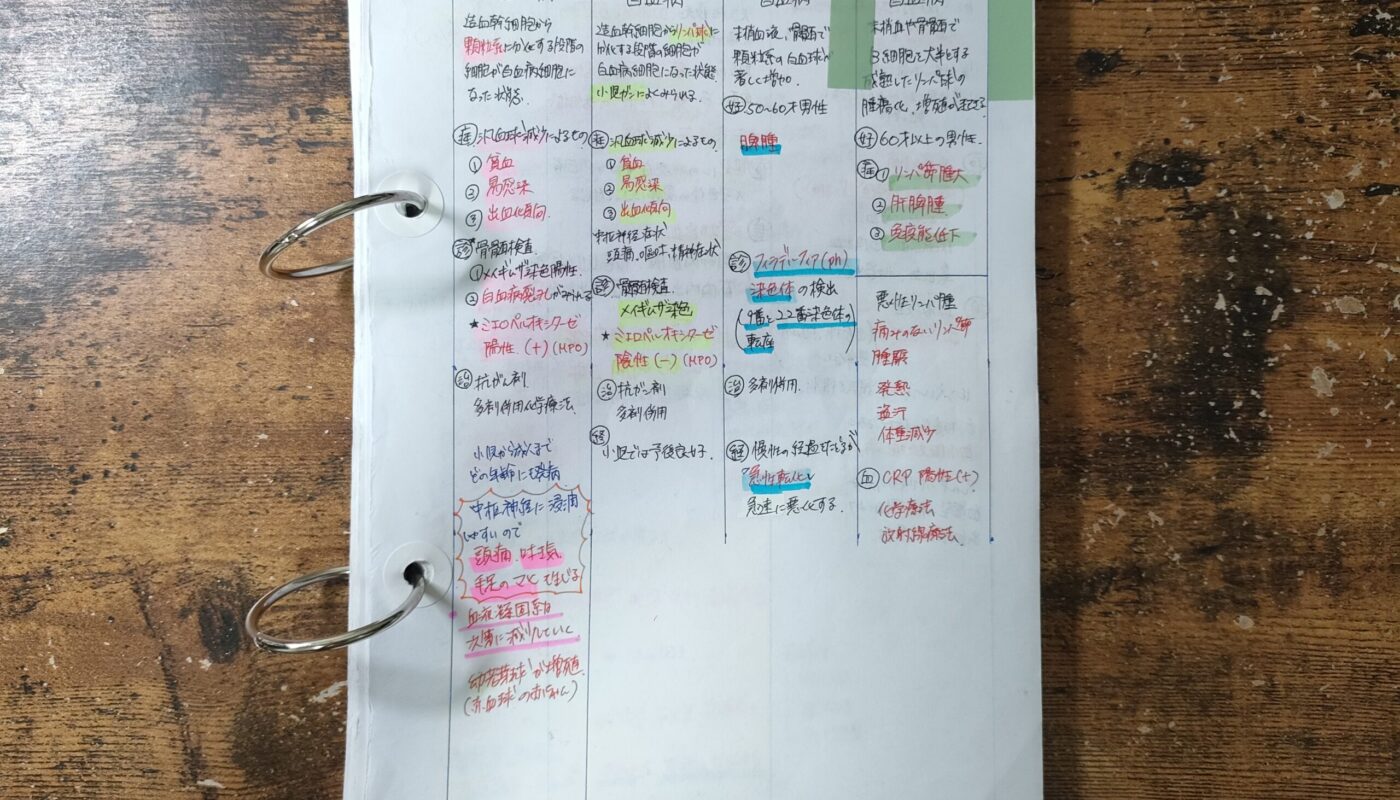 白血病
白血病
白血病
造血幹細胞から
顆粒系に分化する段階の
細胞が白血病細胞に
なった状態.
症 汎血球減少によるもの
① 貧血
② 易感染
③ 出血傾向
診 骨髄検査
①メイギムザ染色陽性.
② 白血病裂孔がみられる
★ミエロペルオキシターゼ
陽性.(+)(MPO)
治 抗がん剤
多剤併用化学療法.
小児から成人まで
どの年齢にも発病.
中枢神経に浸潤
しやすいので
頭痛.吐気.
手足のマヒも生じる
血液凝固系は
次第に減少していく
幼若芽球が増殖.
(赤血球の赤ちゃん)
造血幹細胞からリンパ球に
分化する段階の細胞が
白血病細胞になった状態.
小児ガンによくみられる.
症 汎血球減少によるもの.
① 貧血
② 易感染
③ 出血傾向
中枢神経症状
頭痛.嘔吐.精神症状
診 骨髄検査.
メイギムザ染色
★ミエロペルオキシターゼ
陰性(−)(MPO)
治 抗ガン剤
多剤併用
経
小児では予後良好.
末梢血液、骨髄で
顆粒系の白血球が
著しく増加.
好 50~60才男性
脾腫
診 フィラデルフィア(ph)
染色体の検出
(9番と22番染色体の
転座)
治 多剤併用.
経 慢性の経過をたどるが
急性転化し
急速に悪化する.
末梢血や骨髄で
B細胞を大半とする
成熟したリンパ球の
腫瘍化、増殖が起きる
好 60才以上の男性.
症① リンパ節腫大
② 肝脾腫.
③ 免疫能低下
悪性リンパ腫
痛みのないリンパ節
腫脹
発熱
盗汗
体重減少
血 CRP 陽性(+)
化学療法
放射線療法